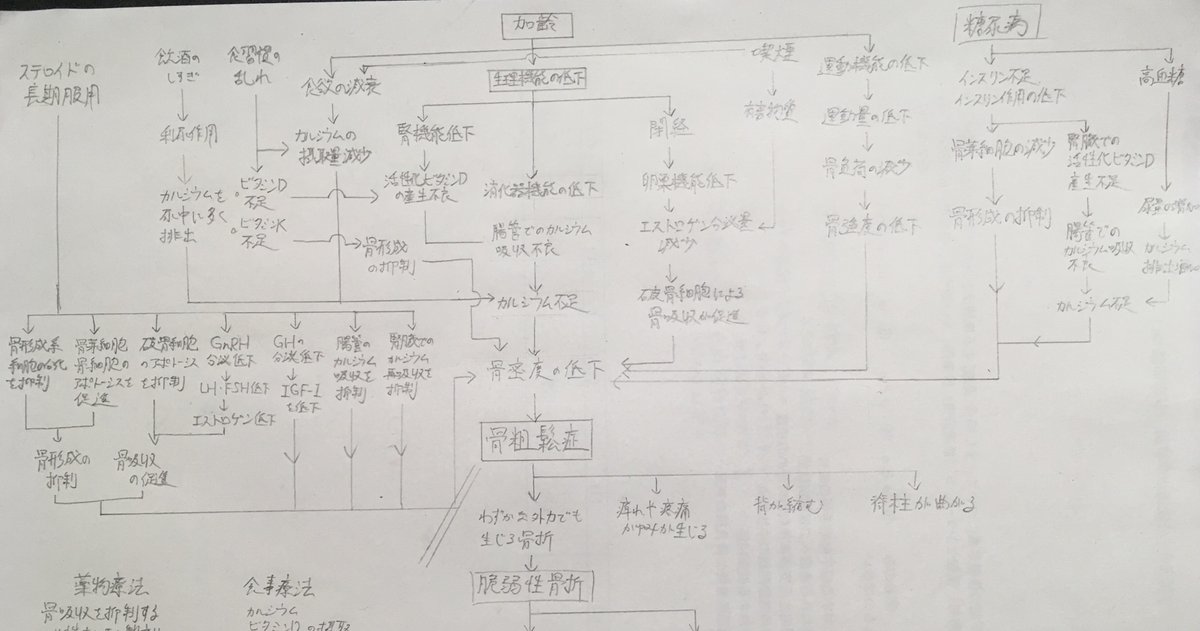 加齢
糖尿病
ステロイドの
長期服用
飲酒の
しすぎ
食習慣の
乱れ
食欲の減衰
生理機能の低下
喫煙
運動機能の低下
インスリン不足
インスリン作用の低下
高血糖
利尿作用
カルシウムの
摂取量減少
腎機能低下
閉経
有害物質
運動量の低下
骨芽細胞の減少
腎臓での
活性化ビタミンD
産生不足
カルシウムを
尿中に多く
排出
ビタミンD
不足
ビタミンK
不足
活性化ビタミンD
の産生不良
消化器機能の低下
卵巣機能低下
骨負荷の減少
骨形成の抑制
尿量の増加
骨形成
の抑制
腸管でのカルシウム
吸収不良
エストロゲン分泌量
減少
骨密度の低下
腸管での
カルシウム吸収
不良
カルシウム
カルシウム不足
破骨細胞による
骨吸収が促進
カルシウム不足
骨形成系
細胞の分化
を抑制
骨芽細胞
骨細胞の
アポトーシスを
促進
破骨細胞
のアポトーシス
を抑制
GnRH
分泌低下
LH・FSH低下
エストロゲン低下
GHの
分泌低下
IGF-I
を低下
腸管の
カルシウム
吸収を
抑制
腎臓での
カルシウム
再吸収を
抑制
骨密度の低下
骨形成の
抑制
骨吸収
の促進
骨粗鬆症
わずかな外力でも
生じる骨折
痺れや疼痛
が生じる
背が縮む
脊柱が曲がる
脆弱性骨折
薬物療法
骨吸収を抑制する
食事療法
カルシウム
ビタミンDの摂取